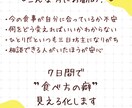 ・今の食事が自分に合っているか不安
・何をどう変えればいいかわからない
・ひとりだといつも三日坊主になりがち
・相談できる人がいたほうが安心
7日間で
"食べ方の癖"
見える化します